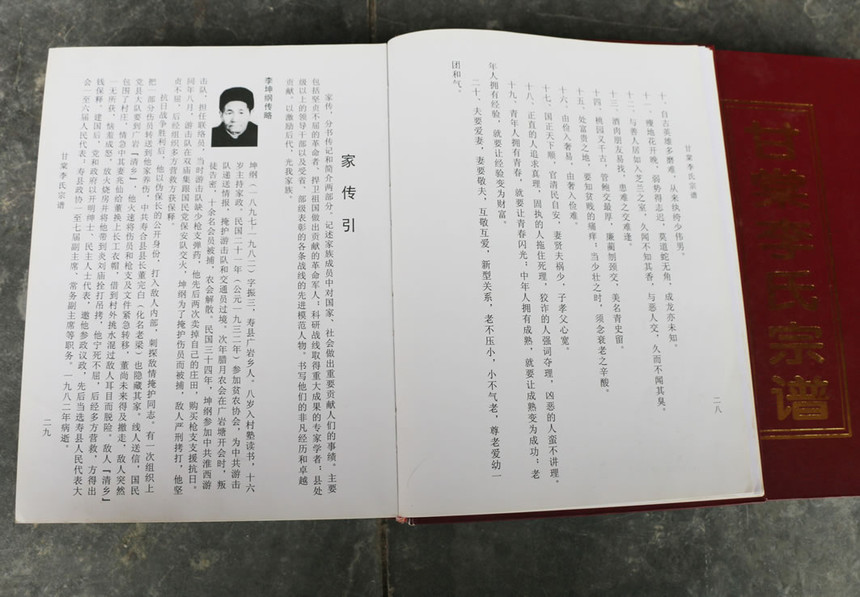 甘棠李氏宗谱
甘棠李氏宗谱
十、自古英雄多磨难，从来纨绔少伟男。
十一、瘦地花开晚，弱势得志迟，莫道蛇无角，成龙亦未知。
十二、与善人居如入芝兰之室，久闻不知其香，与恶人交，久而不闻其臭。
十三、酒肉朋友易找，患难之交难逢。
十四、桃园义千古，管鲍交最厚，廉蔺刎颈交，美名青史留。
十五、处富贵之地，要知贫贱的痛痒；当少壮之时，须念衰老之辛酸。
十六、由俭入奢易，由奢入俭难。
十七、国正天下顺，官清民自安，妻贤夫祸少，子孝父心宽。
十八、正直的人追求真理，固执的人拖住死理，狡诈的人强词夺理，凶恶的人蛮不讲理。
十九、青年人拥有青春，就要让青春闪光；中年人拥有成熟，就要让成熟变为成功；老
年人拥有经验，就要让经验变为财富。
二十、夫要爱妻，妻要敬夫，互敬互爱，新型关系，老不压小，小不气老，尊老爱幼一
团和气。
二八
家传引
家传，分书传记和简介两部分。记述家族成员中对国家、社会做出重要贡献人们的事绩。主要
包括坚贞不屈的革命者，捍卫祖国做出贡献的革命军人；科研战线取得重大成果的专家学者；县处
级以上的领导干部以及受省、部级表彰的各条战线的先进模范人物。书写他们的非凡经历和卓越
贡献，以激励后代，光我家族。
李坤纲传略
坤纲（一八九七—一九八二）字振三，寿县广岩乡人，八岁入村塾读书，十六
岁主持家政，民国二十一年（公元一九三二年）参加贫农协会，为中共游击
队递送情报，掩护游击队和交通员过境。次年腊月农会在广岩塘开会时，叛
徒告密，十余名会员被捕，农会解散，民国三十四年，坤纲参加中共淮西游
击队，担任联络员，当时游击队缺少枪支弹药，他先后两次卖掉自己的庄田，购买枪支支援抗日。
同年八月，游击队在双庙集跟国民党保安队交火，坤纲为了掩护伤员而被捕，敌人严刑拷打，他坚
贞不屈，后经组织多方营救方获保释。
抗日战争胜利后，他以伪保长的公开身份，打入敌人内部，刺探敌情掩护同志。有一次组织上
把一部分伤员转送到他家养伤，中共寿合县县长董完白（化名老梁）也隐藏其家。线人送信，国民
党县大队要到广岩「清乡」，他火速将伤员和枪支及文件紧急转移，董尚未来得及撤走，敌人突然
包围了村庄，情急中其妻兆仙给董换上长工衣帽，借到村外挑水混过敌人耳目而脱险。敌人「清乡」
一无所获，恼羞成怒，放火烧房并将他带到炎刘庙拴打吊拷，他宁死不屈，后经多方营救，方得出
钱保释。建国后，党和政府以开明绅士、民主人士代表，邀他参政议政，先后当选寿县人民代表大
会一至六届人民代表、寿县政协一至七届副主席、常务副主席等职务。一九八二年病逝。
甘棠李氏宗谱
二九